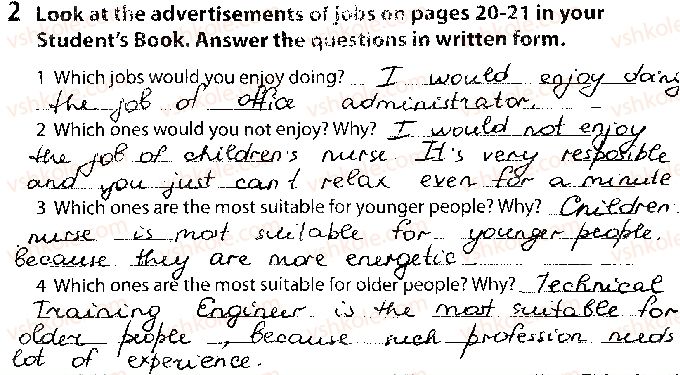 2 Look at the advertisements of jobs on pages 20-21 in your
Student's Book. Answer the questions in written form.
1 Which jobs would you enjoy doing? I would enjoy doing
the job of office administrator.
2 Which ones would you not enjoy? Why? I would not enjoy
the job of children's nurse. It's very resposible
and you just can't relax even for a minute
3 Which ones are the most suitable for younger people? Why? Children
nurse is most suitable for younger people.
Because they are more energetic
4 Which ones are the most suitable for older people? Why? Technical
Training Engineer is the most suitable for
older people, because such profession needs
lot of experience.